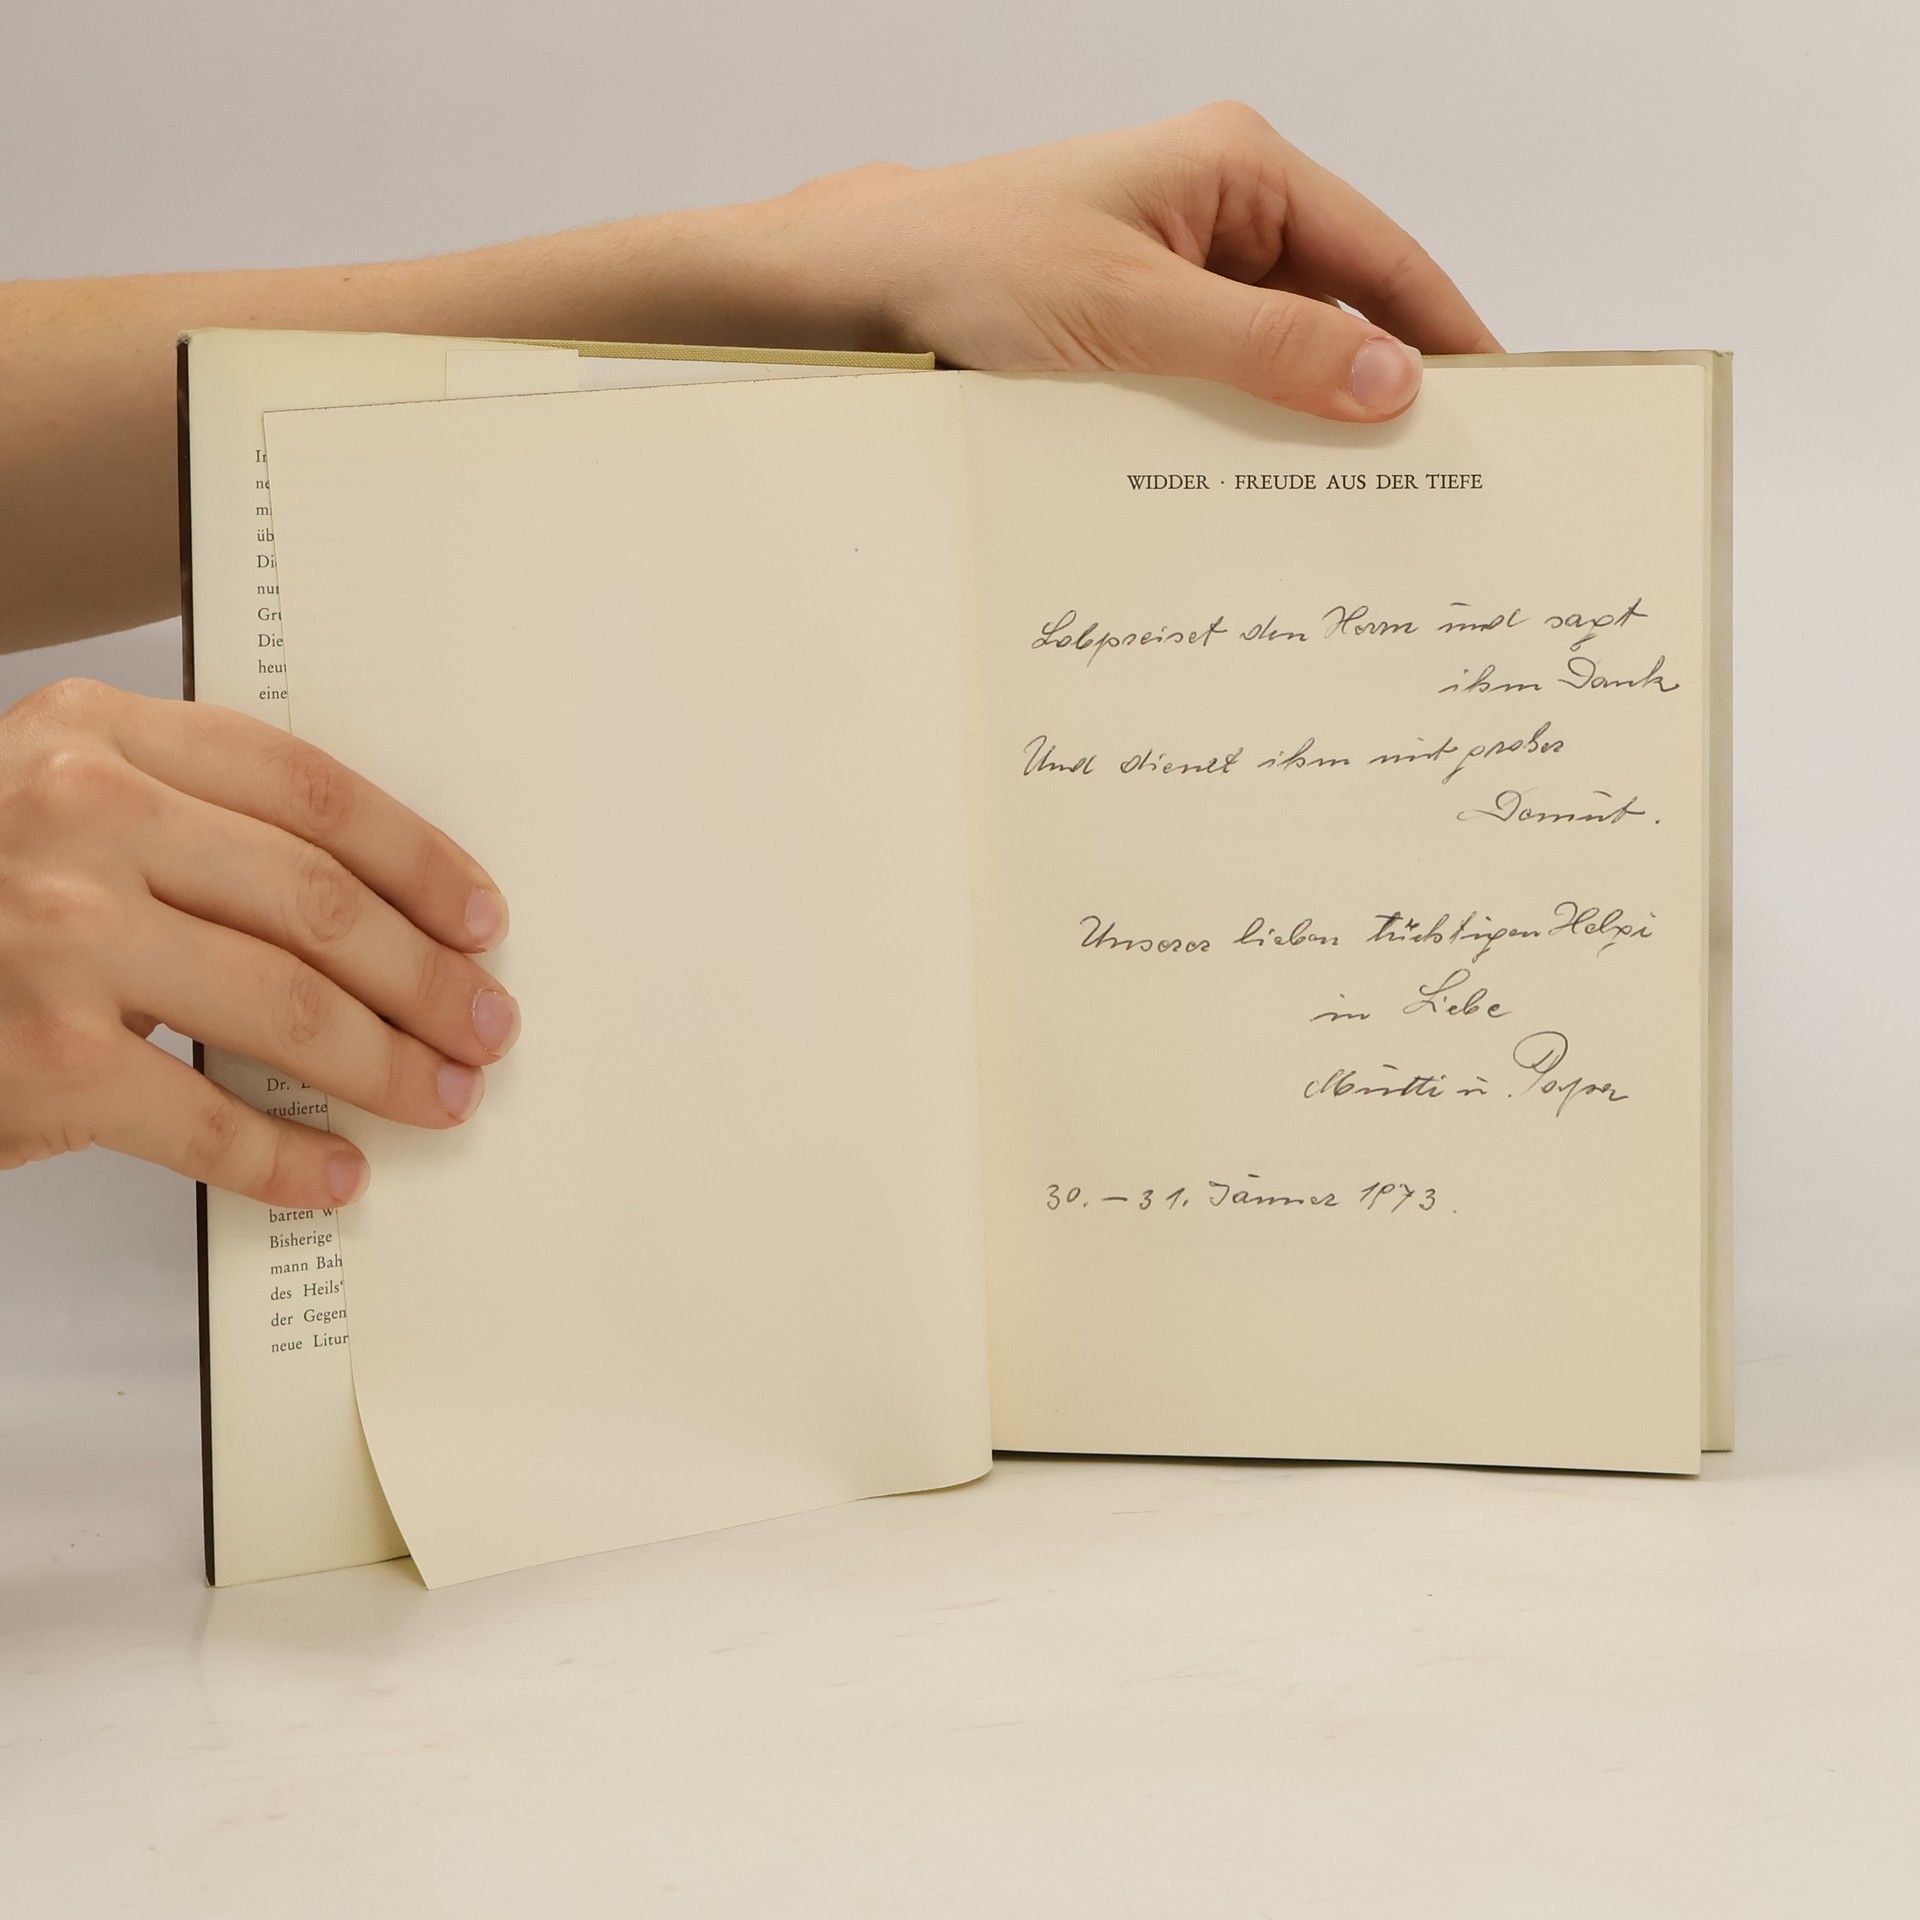 In
ne
m
üb
Di
nun
Gru
Die
heut
eine
Dr.
studierte
barten w
Bisherige
mann Bah
des Heils“
der Gegen
neue Litur
WIDDER · FREUDE AUS DER TIEFE
Lobpreiset den Herrn und sagt
ihm Dank
Und dienet ihm mit großer
Demut.
Unserer lieben tüchtigen Helgi
in Liebe
Mutti u. Papa
30. – 31. Jänner 1973.